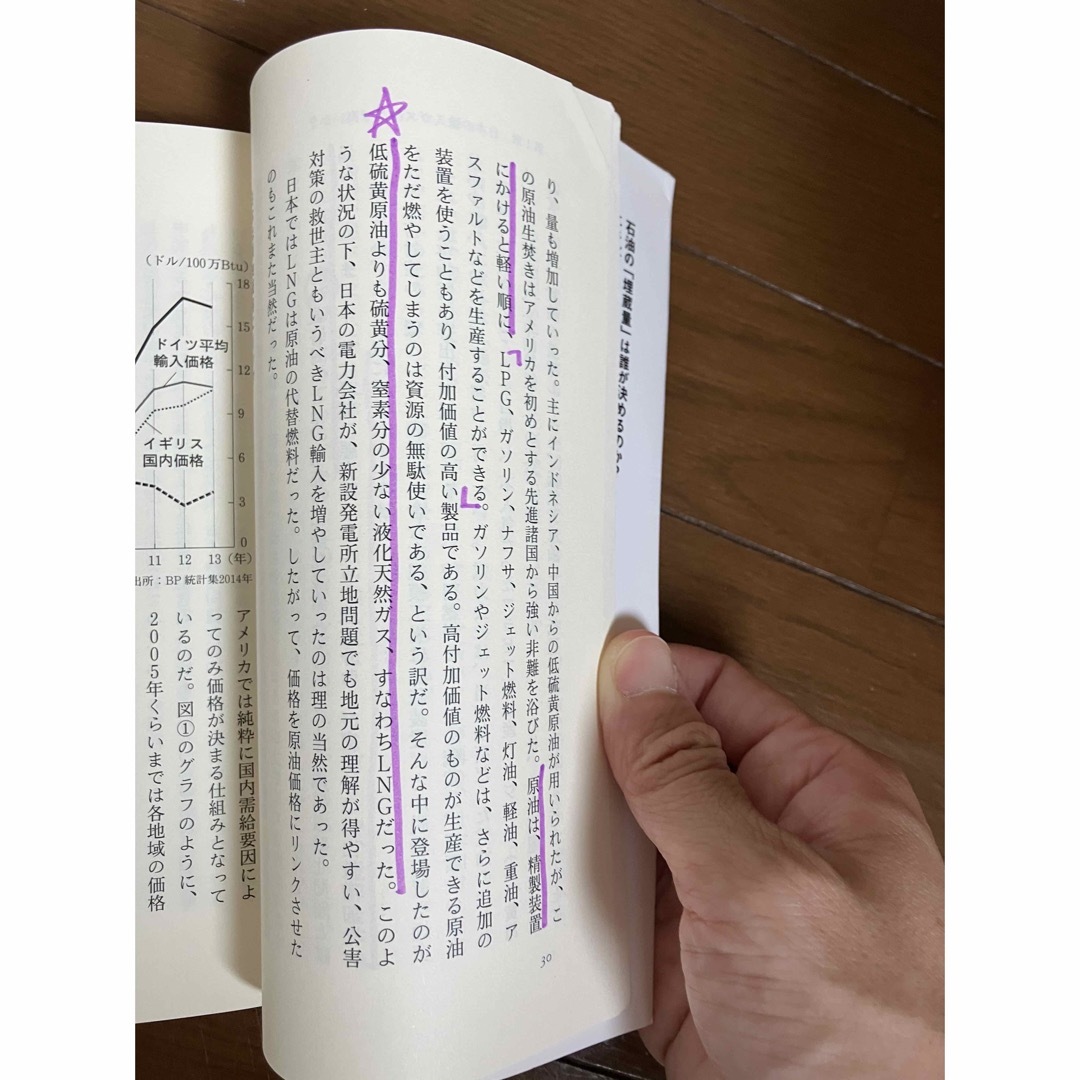 石油の「埋蔵量」は誰が決めるのか?
り、量も増加していった。主にインドネシア、中国からの低硫黄原油が用いられたが、こ
の原油生焚きはアメリカを初めとする先進諸国から強い非難を浴びた。原油は、精製装置
にかけると軽い順に、LPG、ガソリン、ナフサ、ジェット燃料、灯油、軽油、重油、ア
スファルトなどを生産することができる。ガソリンやジェット燃料などは、さらに追加の
装置を使うこともあり、付加価値の高い製品である。高付加価値のものが生産できる原油
をただ燃やしてしまうのは資源の無駄使いである、という訳だ。そんな中に登場したのが
低硫黄原油よりも硫黄分、窒素分の少ない液化天然ガス、すなわちLNGだった。このよ
うな状況の下、日本の電力会社が、新設発電所立地問題でも地元の理解が得やすい、公害
対策の救世主ともいうべきLNG輸入を増やしていったのは理の当然であった。
日本ではLNGは原油の代替燃料だった。したがって、価格を原油価格にリンクさせた
のもこれまた当然だった。
30
(ドル/100万Btu)
18
15
12
9
6
3
0
ドイツ平均
輸入価格
イギリス
国内価格
11 12 13 (年)
出所:BP統計集2014年
アメリカでは純粋に国内需給要因によ
ってのみ価格が決まる仕組みとなって
いるのだ。図①のグラフのように、
2005年くらいまでは各地域の価格